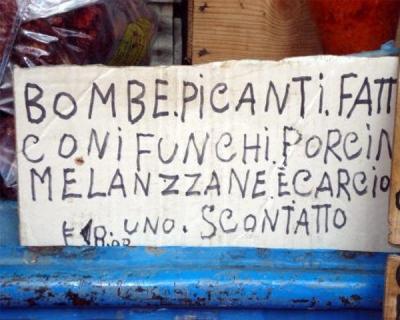 BOMBE.PiCANTi.FATT
CONi FUNCHi.PORCIN
MELANZZANE.ECARCIO
UNO. SCONTATTO